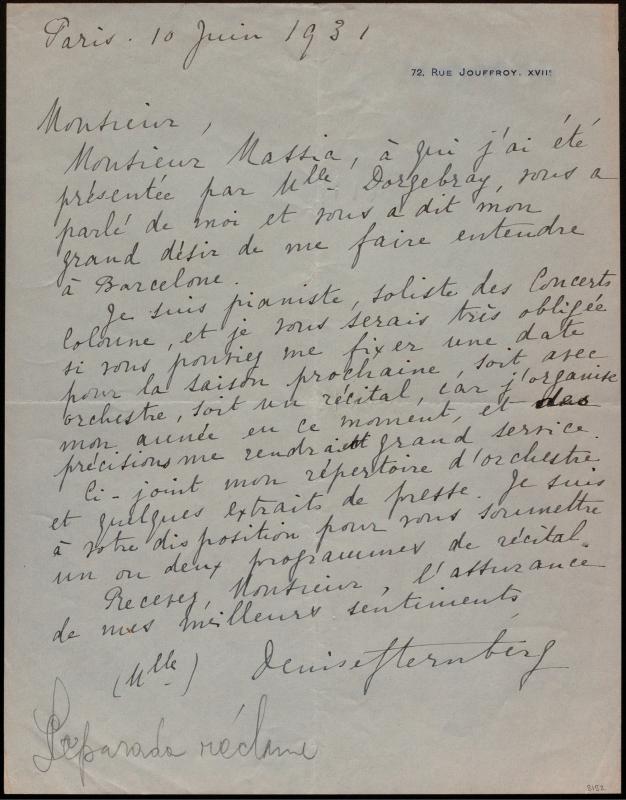 Paris. 10 Juin 1931
72, RUE JOUFFROY. XVIIe
Monsieur,
Monsieur Massia, à qui j'ai été
présentée par Mlle Dorgebray, vous a
parlé de moi et vous a dit mon
grand désir de me faire entendre
à Barcelone.
Je suis pianiste, soliste des Concerts
Colonne, et je vous serais très obligée
si vous pouviez me fixer une date
pour la saison prochaine, soit avec
orchestre, soit un récital, car j'organise
mon année en ce moment, et des
précisions me rendraient grand service.
Ci-joint mon répertoire d'orchestre
et quelques extraits de presse. Je suis
à votre disposition pour vous soumettre
un ou deux programmes de récital.
Recevez, Monsieur, l'assurance
de mes meilleurs sentiments
(Mlle) Denise Sternberg
Separada réclame
8152